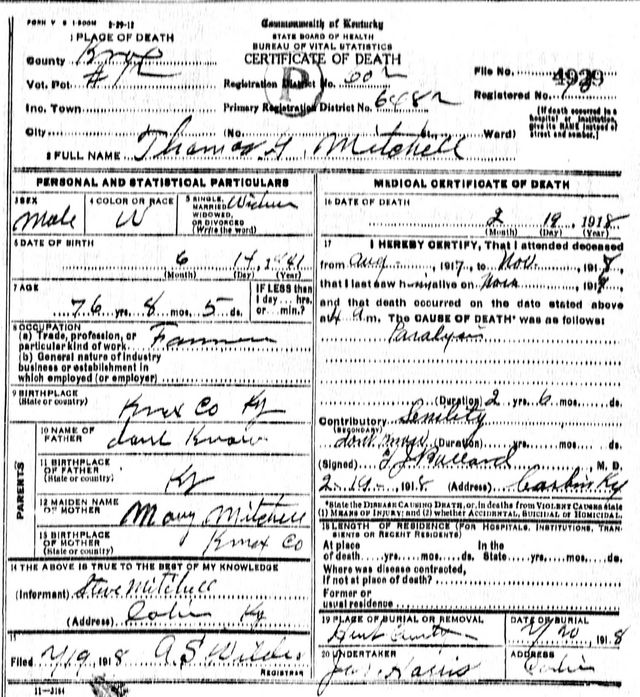 FORM V S 1-500M 2-29-12
Commonwealth of Kentucky
STATE BOARD OF HEALTH
BUREAU OF VITAL STATISTICS
CERTIFICATE OF DEATH
1 PLACE OF DEATH
County Knox
Vot. Pot
Inc. Town
City
Registration District No. 602
Primary Registration District No. 6482
File No. 4929
Registered No.
(No. St. Ward)
[If death occurred in a hospital or institution, give its NAME instead of street and number.]
2 FULL NAME Thomas Mitchell
PERSONAL AND STATISTICAL PARTICULARS
3 SEX
Male
4 COLOR OR RACE
W
5 SINGLE, MARRIED, WIDOWED, OR DIVORCED (Write the word)
6 DATE OF BIRTH
6 14, 1841
(Month) (Day) (Year)
7 AGE
76 yrs. 8 mos. 5 ds.
IF LESS than 1 day... hrs. or min.?
8 OCCUPATION
(a) Trade, profession, or particular kind of work Farmer
(b) General nature of industry business or establishment in which employed (or employer)
9 BIRTHPLACE (State or country)
Knox Co Ky
PARENTS
10 NAME OF FATHER
dont Know
11 BIRTHPLACE OF FATHER (State or country)
Ky
12 MAIDEN NAME OF MOTHER
Mary Mitchell
13 BIRTHPLACE OF MOTHER (State or country)
Knox Co
14 THE ABOVE IS TRUE TO THE BEST OF MY KNOWLEDGE
(Informant) Steve Mitchell
(Address) Ky
15
Filed 2/19, 1918 A S
REGISTRAR
11-3184
MEDICAL CERTIFICATE OF DEATH
16 DATE OF DEATH
2 19, 1918
(Month) (Day) (Year)
17 I HEREBY CERTIFY, That I attended deceased
from Aug 1917, to Nov 191
that I last saw h alive on Nov 191
and that death occurred on the date stated above
at 4 a m. The CAUSE OF DEATH* was as follows:
Paralysis
(Duration) 2 yrs. 6 mos. ds.
Contributory Senility
(SECONDARY)
(Duration) yrs. mos. ds.
(Signed) Ballard, M. D.
2-19-1918 (Address) Corbin Ky
*State the DISEASE CAUSING DEATH, or, in deaths from VIOLENT CAUSES state (1) MEANS OF INJURY; and (2) whether ACCIDENTAL, SUICIDAL OR HOMICIDAL.
18 LENGTH OF RESIDENCE (FOR HOSPITALS, INSTITUTIONS, TRANSIENTS OR RECENT RESIDENTS)
At place of death yrs. mos. ds. In the State yrs. mos. ds.
Where was disease contracted, If not at place of death?
Former or usual residence
19 PLACE OF BURIAL OR REMOVAL
DATE OF BURIAL
2/20, 1918
20 UNDERTAKER
Harris
ADDRESS